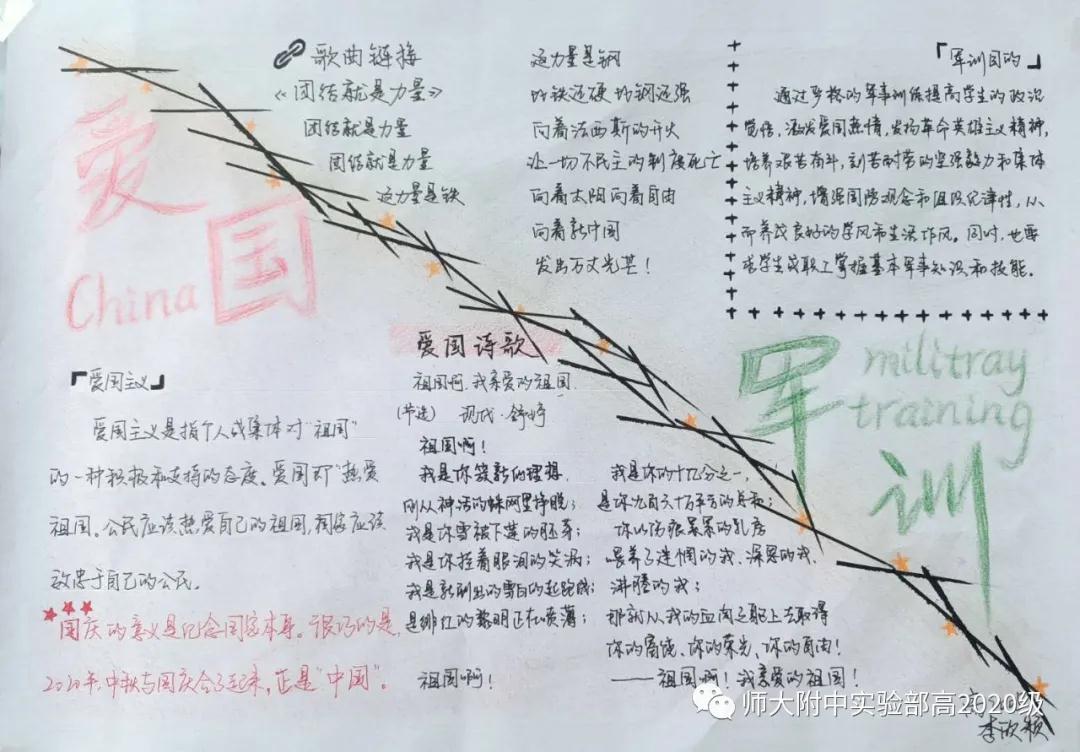 爱国
China
歌曲链接
《团结就是力量》
团结就是力量
团结就是力量
这力量是铁
这力量是钢
比铁还硬 比钢还强
向着法西斯的开火
让一切不民主的制度死亡
向着太阳 向着自由
向着新中国
发出万丈光芒!
「军训目的」
通过严格的军事训练提高学生的政治
觉悟,激发爱国热情,发扬革命英雄主义精神,
培养艰苦奋斗,刻苦耐劳的坚强毅力和集体
主义精神,增强国防观念和组织纪律性,从
而养成良好的学风和生活作风。同时,也要
求学生或职工掌握基本军事知识和技能.
军训
militray
training
「爱国主义」
爱国主义是指个人或集体对"祖国"
的一种积极和支持的态度。爱国即"热爱
祖国。公民应该热爱自己的祖国,国家应该
效忠于自己的公民。
国庆的意义是纪念国家本身。很巧的是,
2020年,中秋与国庆合了起来,正是"中国"。
爱国诗歌
祖国啊,我亲爱的祖国
(节选) 现代·舒婷
祖国啊!
我是你簇新的理想,
刚从神话的蛛网里挣脱;
我是你雪被下莲的胚芽;
我是你挂着眼泪的笑涡;
我是新刷出的雪白的起跑线;
是绯红的黎明正在喷薄;
祖国啊!
我是你的十亿分之一,
是你九百六十万平方的总和;
你以伤痕累累的乳房
喂养了迷惘的我、深思的我、
沸腾的我;
那就从我的血肉之躯上去取得
你的富饶、你的荣光、你的自由!
——祖国啊!我亲爱的祖国!
李欣颖
师大附中实验部高2020级